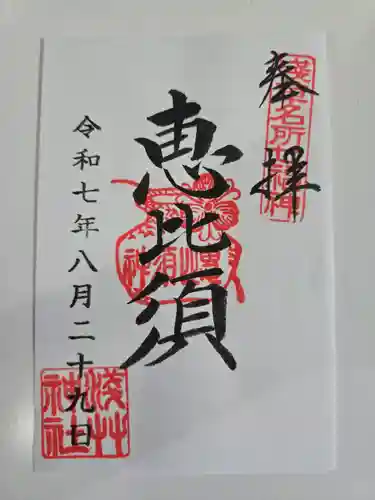 奉拝
恵比須
令和七年八月二十九日
浅草神社